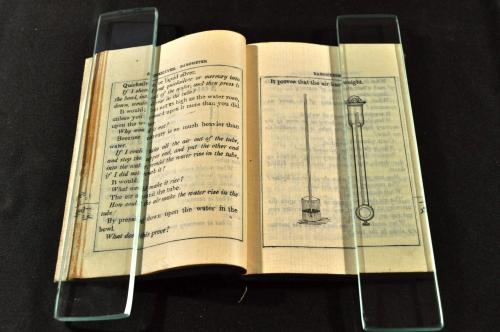 BAROMETER
Quicksilver or liquid silver.
If I should put quicksilver or mercury into
the bowl, instead of the water, and then press it
down, would it rise in the tube?
It would; but not as high as the water rose,
unless you pressed upon it more than you did
upon the water.
Why would it not?
Because mercury is so much heavier than
water.
If I could take all the air out of the tube,
and stop the upper end, and put the other end
into the water, would the water rise in the tube,
if I did not touch it?
It would.
What would make it rise?
The air outside the tube.
How could the air make the water rise in the
tube?
By pressing down upon the water in the
bowl.
What does this prove?
BAROMETER
It proves that the air has weight.